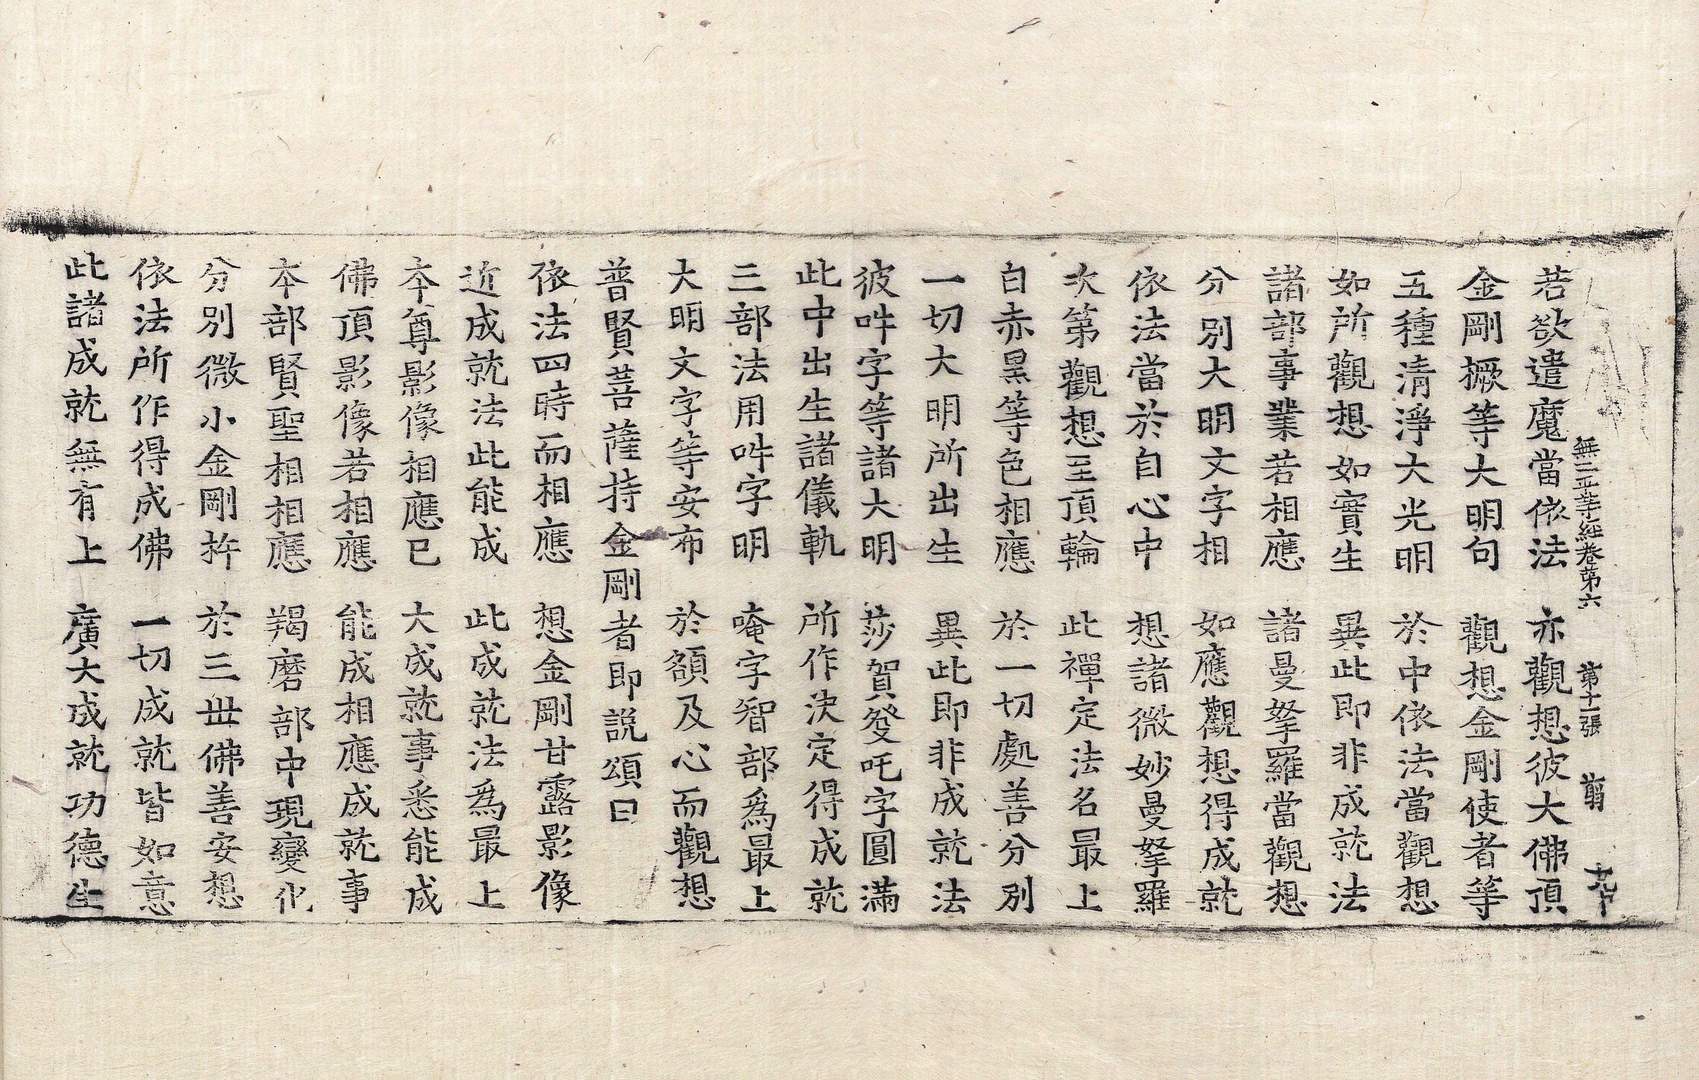 無二平等經卷第六　第十一張　翦
若欲遣魔當依法　亦觀想彼大佛頂
金剛撅等大明句　觀想金剛使者等
五種清淨大光明　於中依法當觀想
如所觀想如實生　異此即非成就法
諸部事業若相應　諸曼拏羅當觀想
分別大明文字相　如應觀想得成就
依法當於自心中　想諸微妙曼拏羅
次第觀想至頂輪　此禪定法名最上
白赤黑等色相應　於一切處善分別
一切大明所出生　異此即非成就法
彼吽字等諸大明　莎賀癹吒字圓滿
此中出生諸儀軌　所作決定得成就
三部法用吽字明　唵字智部為最上
大明文字等安布　於額及心而觀想
普賢菩薩持金剛者即說頌曰
依法四時而相應　想金剛甘露影像
近成就法此能成　此成就法為最上
本尊影像相應已　大成就事悉能成
佛頂影像若相應　能成相應成就事
本部賢聖相相應　羯磨部中現變化
分別微小金剛杵　於三世佛善安想
依法所作得成佛　一切成就皆如意
此諸成就無有上　廣大成就功德生